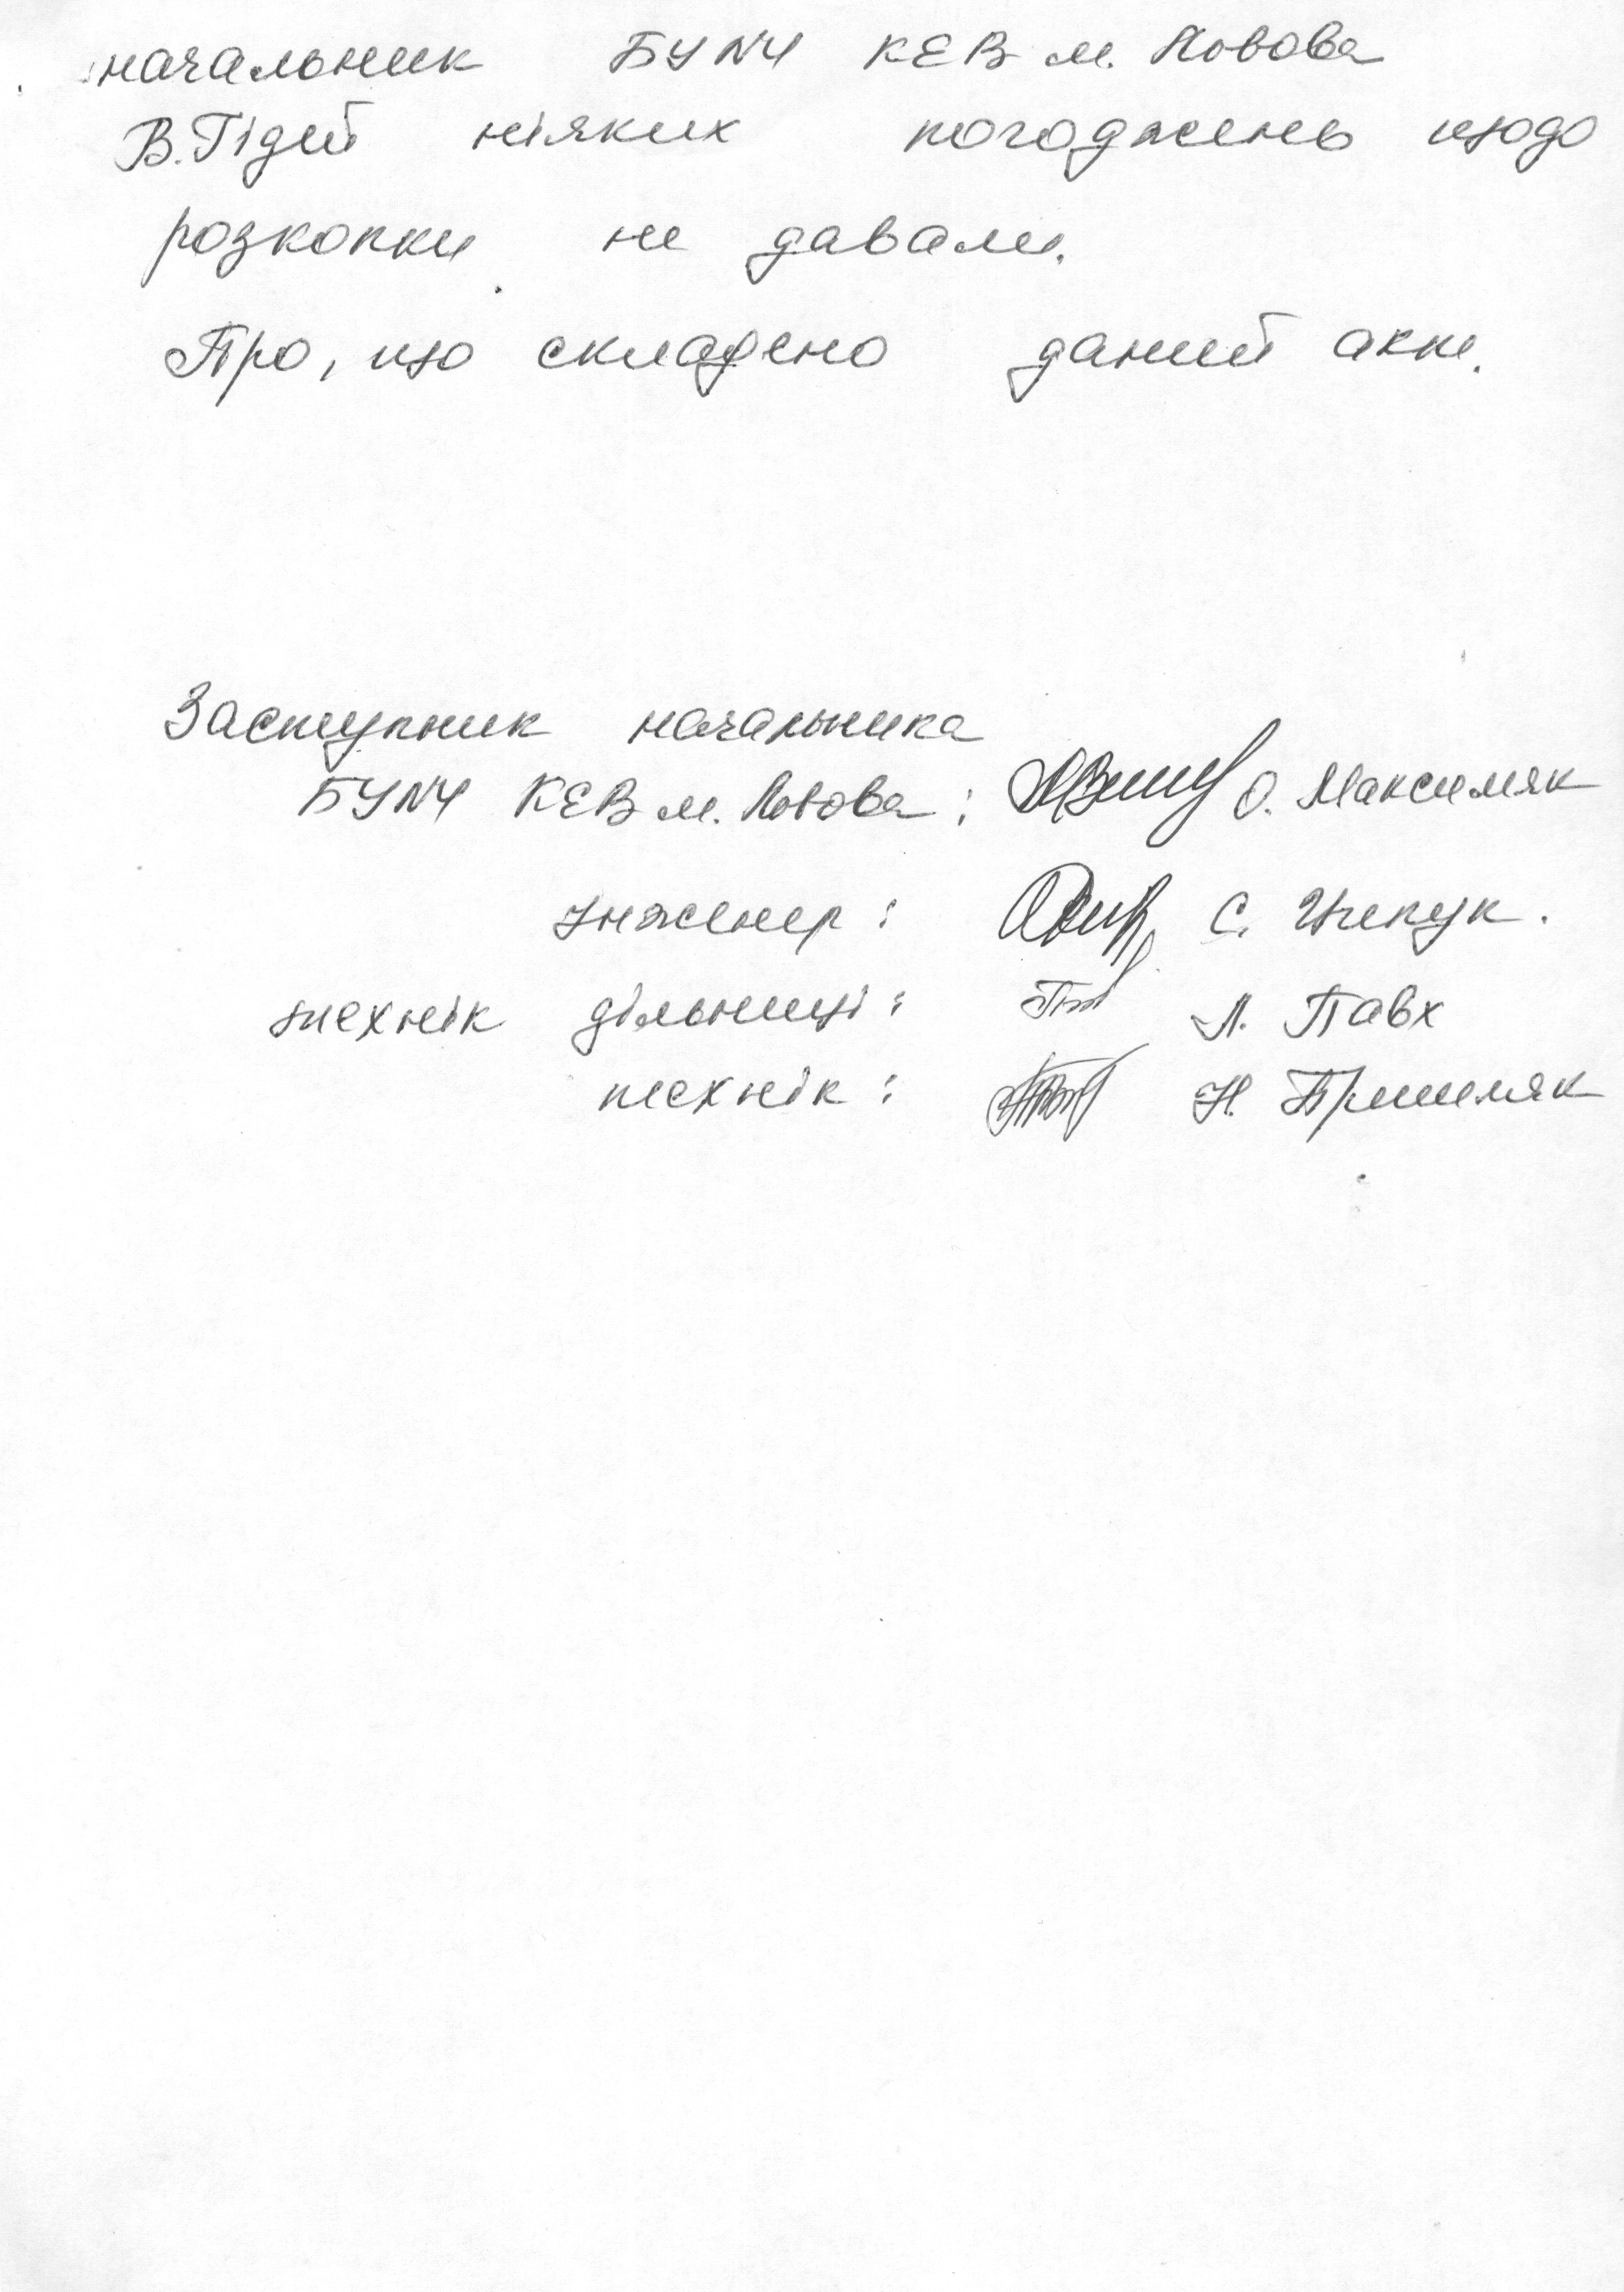 начальник БУ №4 КЕВ м. Львова
В. Гідей ніяких погоджень щодо
розкопки не давали.
Про, що складено даний акт.
Заступник начальника
БУ №4 КЕВ м. Львова: О. Максимяк
Інженер: С.
технік дільниці: Л. Павх
технік: Н. Пришляк